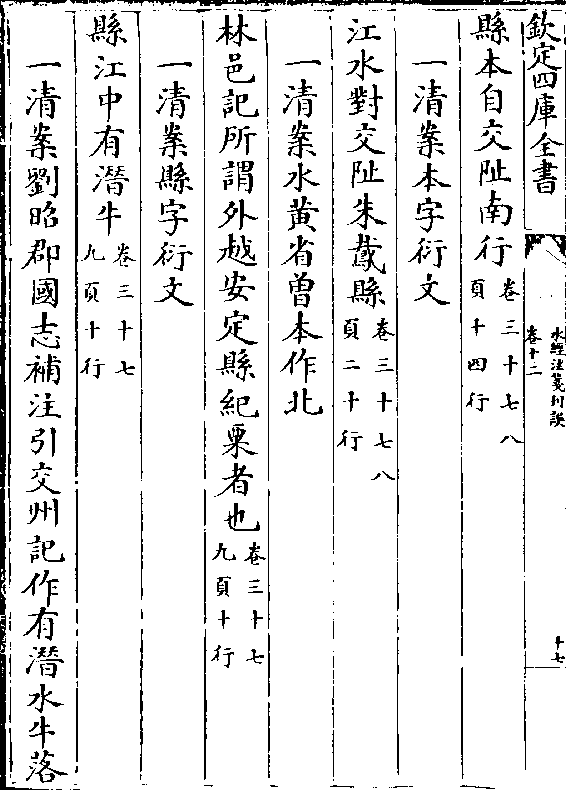 欽定四庫全書
水經注箋刊誤
卷十二
十七
縣本自交阯南行
卷三十七八
頁十四行
一清案本字衍文
江水對交阯朱䳒縣
卷三十七八
頁二十行
一清案水黄省曽本作北
林邑記所謂外越安定縣紀粟者也
卷三十七
九頁十行
一清案縣字衍文
縣江中有潛牛
卷三十七
九頁十行
一清案劉昭郡國志補注引交州記作有潛水牛落